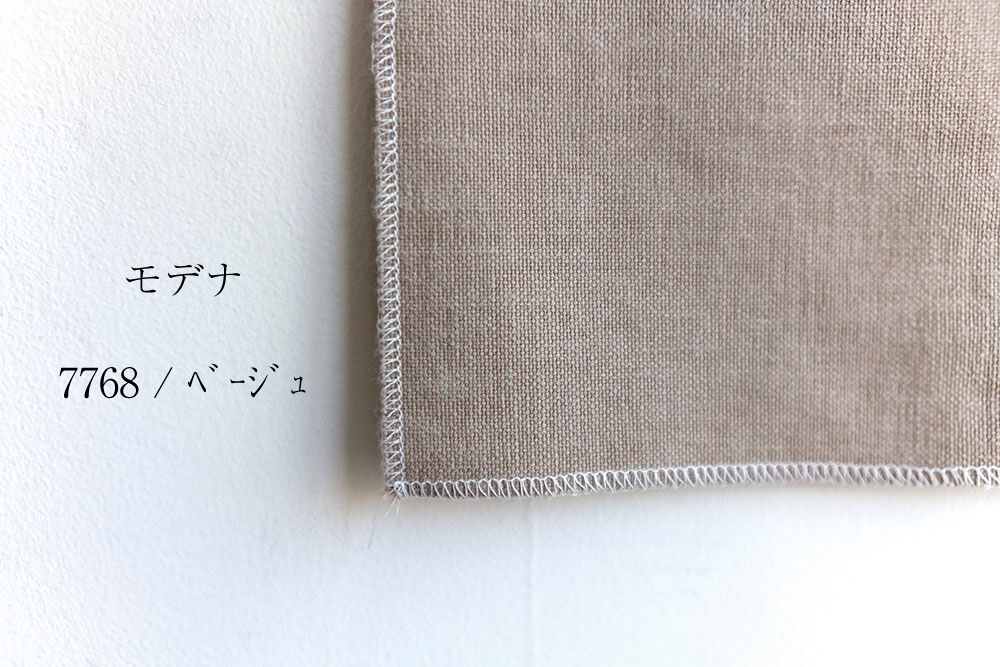 モデナ
7768 / ﾍﾞｰｼﾞｭ